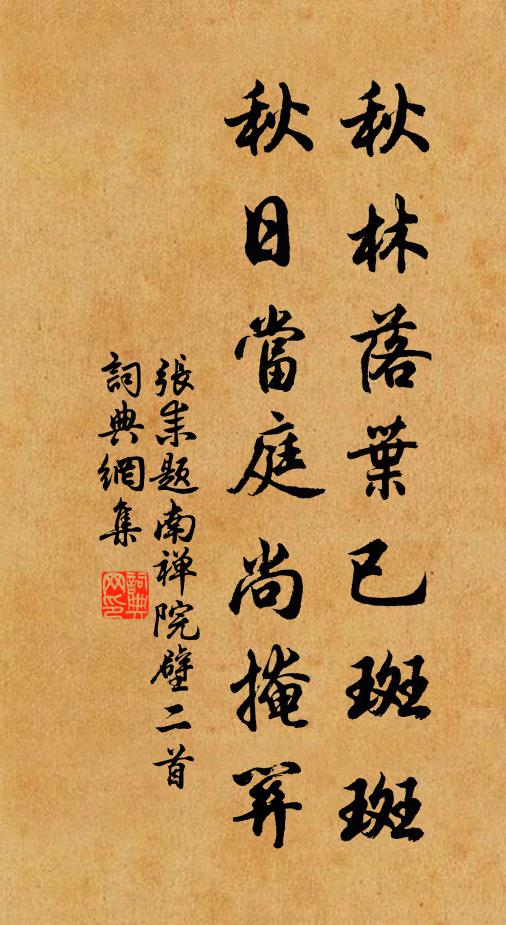 秋林落葉已斑斑
秋日當庭尚掩關
張耒題南禅院壁二首
詞典網集
詞典网印